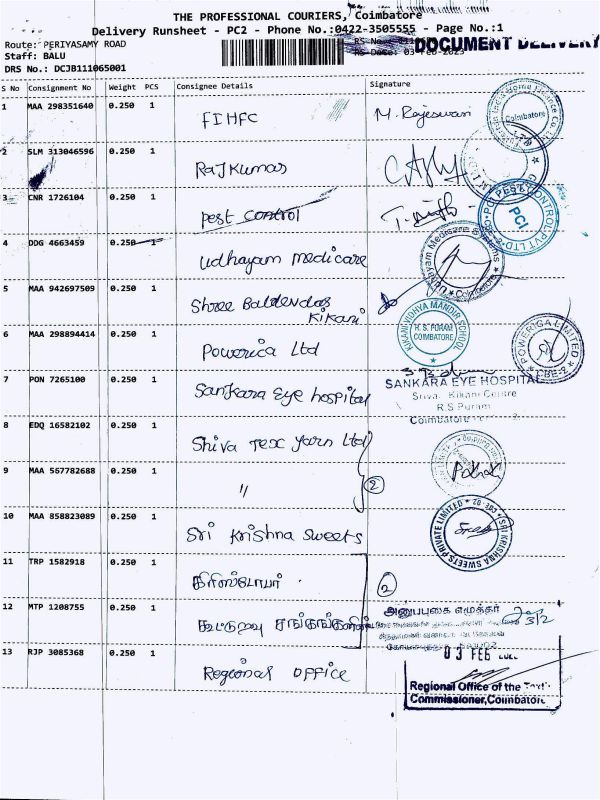 THE PROFESSIONAL COURIERS, Coimbatore
Delivery Runsheet - PC2 - Phone No.:0422-3505555 - Page No.:1
Route: PERIYASAMY ROAD
DOCUMENT DELIVERY
Staff: BALU
RS Date: 03-Feb-2023
DRS No.: DCJB111065001
S No Consignment No Weight PCS Consignee Details Signature
1 MAA 298351640 0.250 1 FIHFC M. Rajeswari
Coimbatore
2 SLM 313046596 0.250 1 Rajkumar
3 CNR 1726104 0.250 1 Pest Control
PCI
4 DDG 4663459 0.250 1 Udhayam Medicare
5 MAA 942697509 0.250 1 Shree Baldendas
Kikani
KIKANI VIDHYA MANDIR SCHOOL
R. S. PURAM
COIMBATORE
6 MAA 298894414 0.250 1 Powerica Ltd
POWERICA LIMITED
CBE-2
7 PON 7265100 0.250 1 Sankara Eye hospital
SANKARA EYE HOSPITAL
Kikani Centre
R.S Puram
Coimbatore
8 EDQ 16582102 0.250 1 Shiva Tex yarn Ltd
9 MAA 567782688 0.250 1 "
2
10 MAA 858823089 0.250 1 Sri Krishna Sweets
SRI KRISHNA SWEETS PRIVATE LIMITED
11 TRP 1582918 0.250 1
2
12 MTP 1208755 0.250 1 கூட்டுறவு
அனுப்புகை எழுத்தர்
3/2
13 RJP 3085368 0.250 1 Regional OFFICE
03 FEB
Regional Office of the Textile
Commissioner,Coimbatore